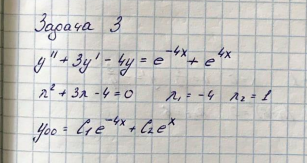 Задача 3
y'' + 3y' - 4y = e^{-4x} + e^{4x}
λ² + 3λ - 4 = 0 λ₁ = -4 λ₂ = 1
y₀₀ = C₁e^{-4x} + C₂e^{x}